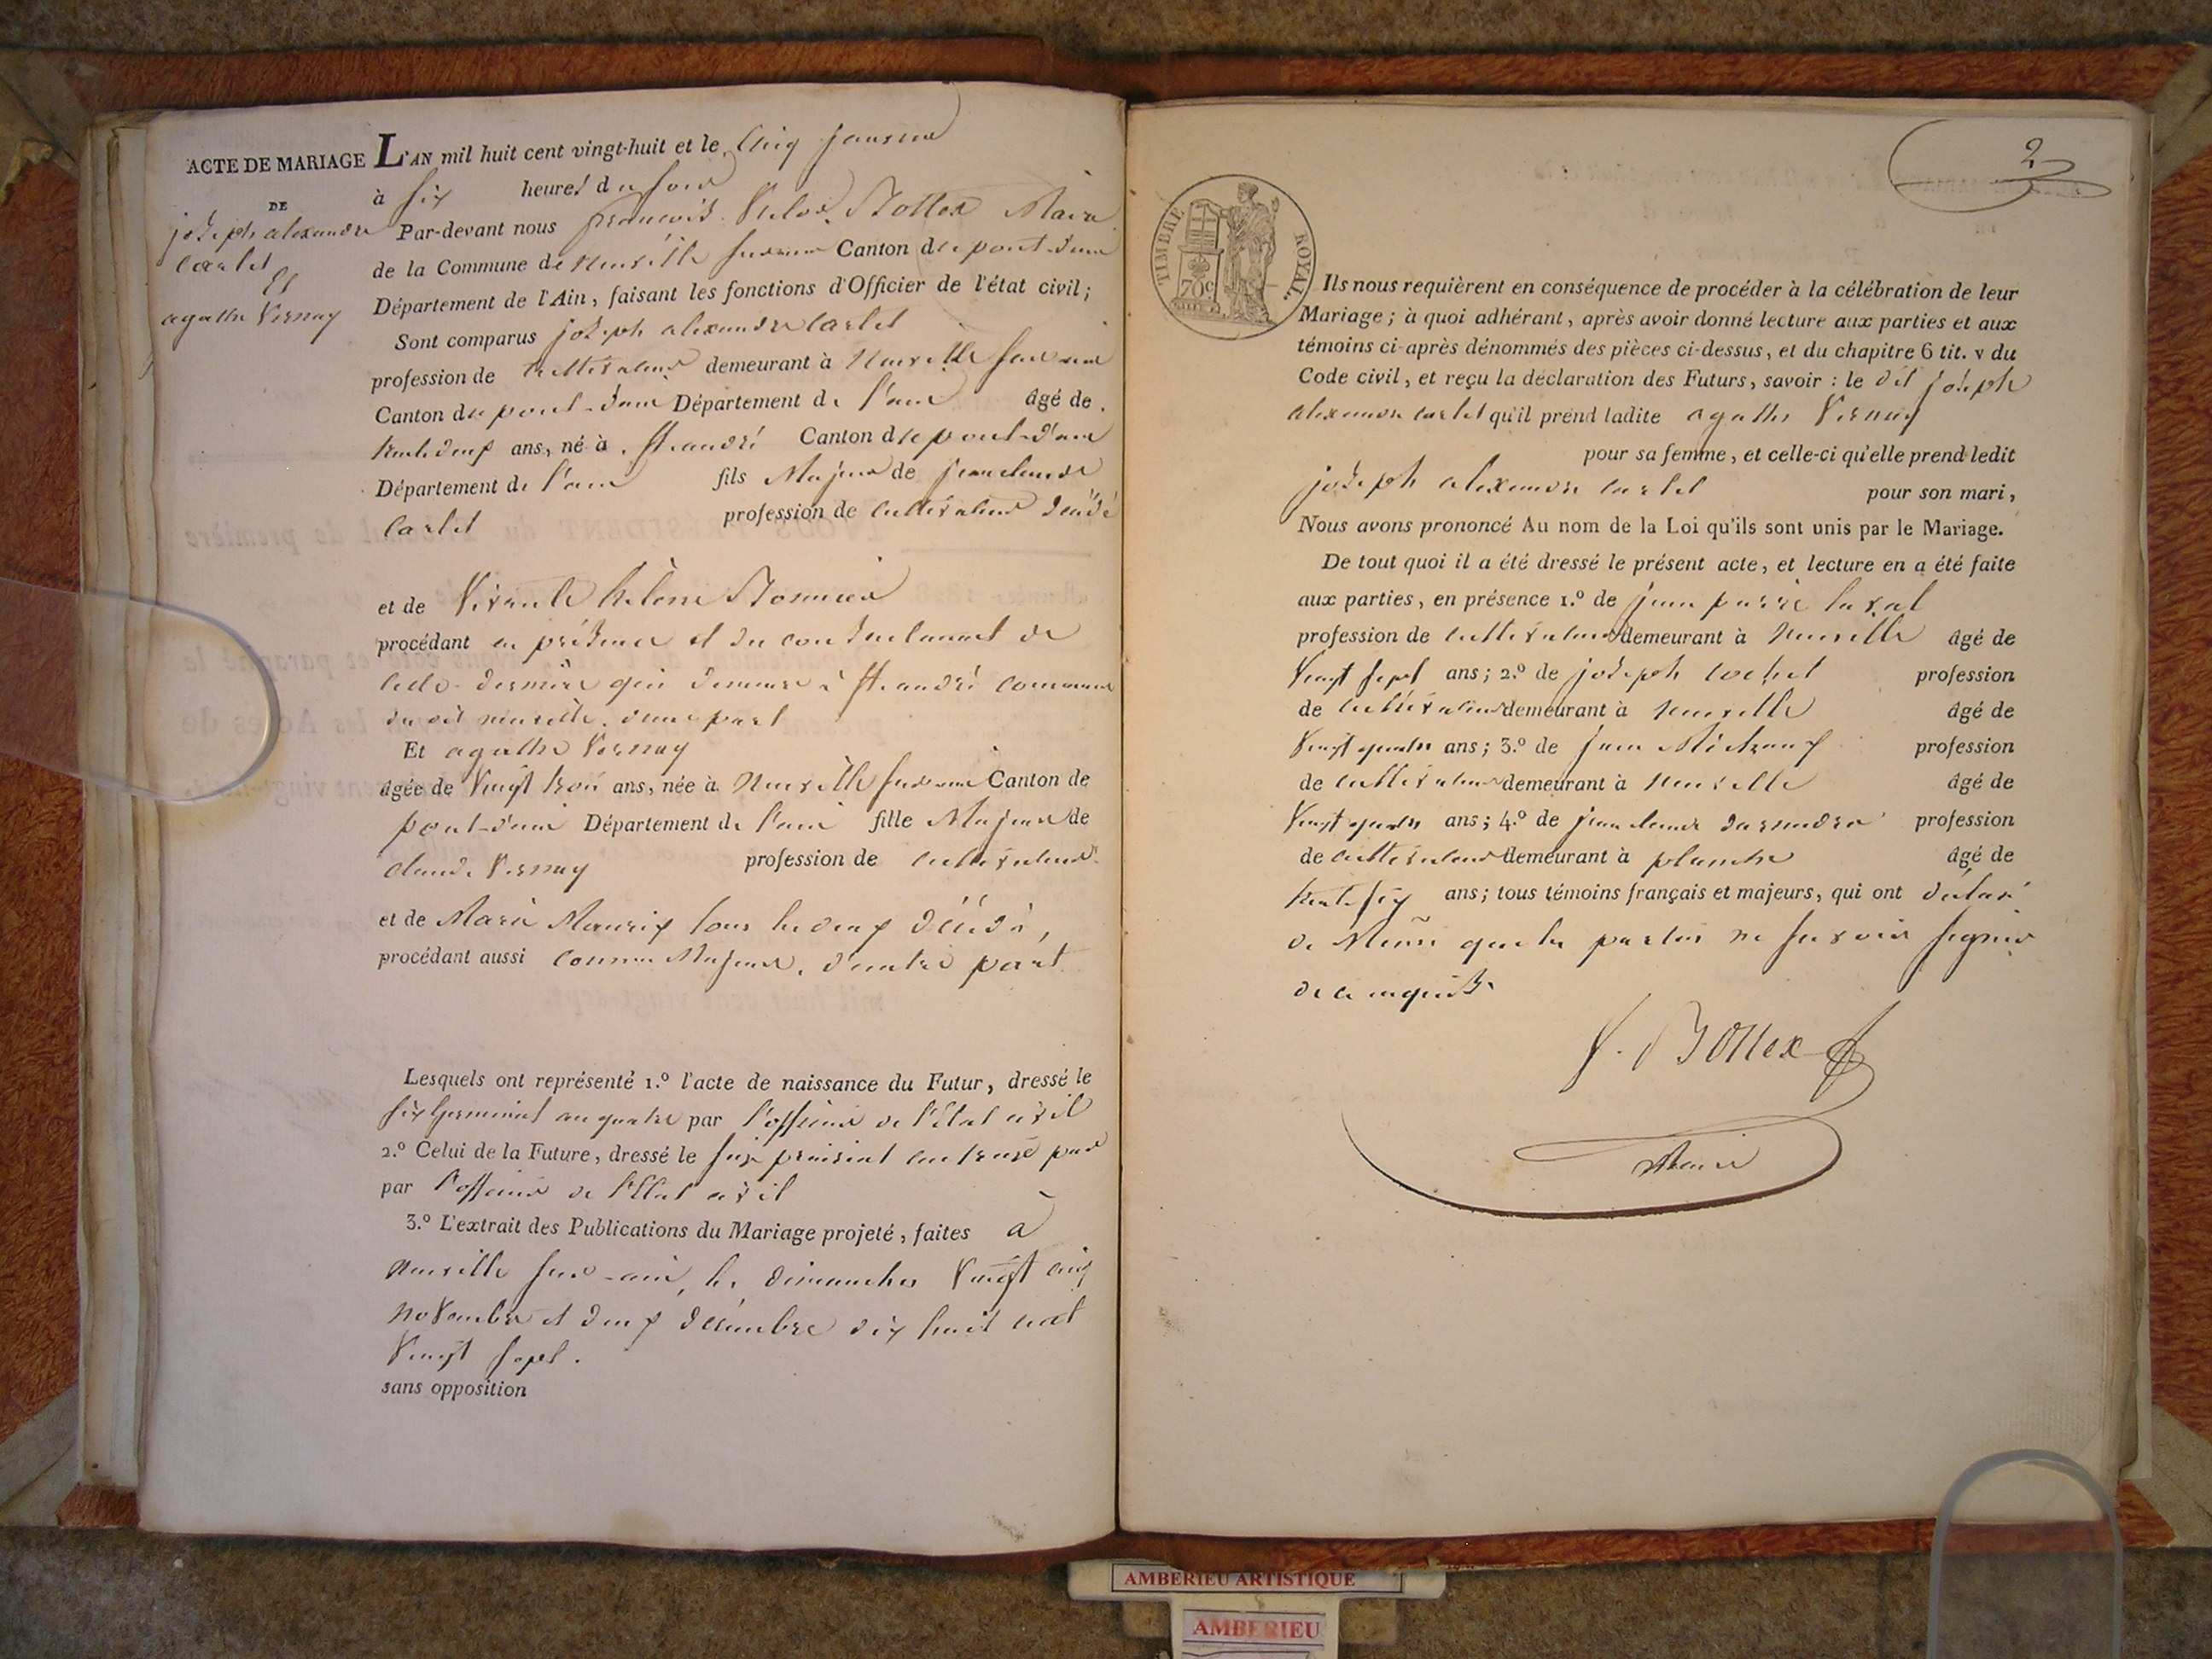 ACTE DE MARIAGE L'AN mil huit cent vingt-huit et le Cinq janvier
à six heures du soir
DE
joseph alexandre
Carlet
Et
agathe Vernay
Par-devant nous françois Victor Bottex Maire
de la Commune de neuville sur ain Canton de pont-d'ain
Département de l'Ain, faisant les fonctions d'Officier de l'état civil;
Sont comparus joseph alexandre Carlet
profession de Cultivateur demeurant à Neuville sur ain
Canton de pont-d'ain Département de l'ain âgé de
trente deux ans, né à St. andré Canton de pont-d'ain
Département de l'ain fils Majeur de jean claude
Carlet profession de cultivateur décédé
et de Vivante helène
procédant en présence et du consentement de
cette dernière qui demeure à St. andré commune
du dit neuville. d'une part
Et agathe Vernay
âgée de Vingt trois ans, née à Neuville sur ain Canton de
pont-d'ain Département de l'ain fille Majeure de
claude Vernay profession de cultivateur
et de Marie Mauris tous les deux décédés,
procédant aussi comme Majeure. d'autre part
Lesquels ont représenté 1.º l'acte de naissance du Futur, dressé le
six Germinal an quatre par l'officier de l'Etat civil
2.º Celui de la Future, dressé le six prairial an treize par
par l'officier de l'Etat civil
3.º L'extrait des Publications du Mariage projeté, faites à
neuville sur-ain, les dimanches Vingt cinq
novembre et deux décembre dix huit cent
Vingt sept.
sans opposition
2
TIMBRE ROYAL.
70c
Ils nous requièrent en conséquence de procéder à la célébration de leur
Mariage; à quoi adhérant, après avoir donné lecture aux parties et aux
témoins ci-après dénommés des pièces ci-dessus, et du chapitre 6 tit. v du
Code civil, et reçu la déclaration des Futurs, savoir : le dit joseph
alexandre carlet qu'il prend ladite agathe Vernay
pour sa femme, et celle-ci qu'elle prend ledit
joseph alexandre carlet pour son mari,
Nous avons prononcé Au nom de la Loi qu'ils sont unis par le Mariage.
De tout quoi il a été dressé le présent acte, et lecture en a été faite
aux parties, en présence 1.º de jean pierre laval
profession de cultivateur demeurant à Neuville âgé de
Vingt sept ans; 2.º de joseph cochet profession
de cultivateur demeurant à neuville âgé de
Vingt quatre ans; 3.º de jean profession
de cultivateur demeurant à neuville âgé de
Vingt quatre ans; 4.º de jean claude profession
de cultivateur demeurant à planche âgé de
trente six ans; tous témoins français et majeurs, qui ont déclaré
de Même que les parties ne savoir signer
de ce requis
V. Bottex
Maire
AMBERIEU ARTISTIQUE
AMBERIEU